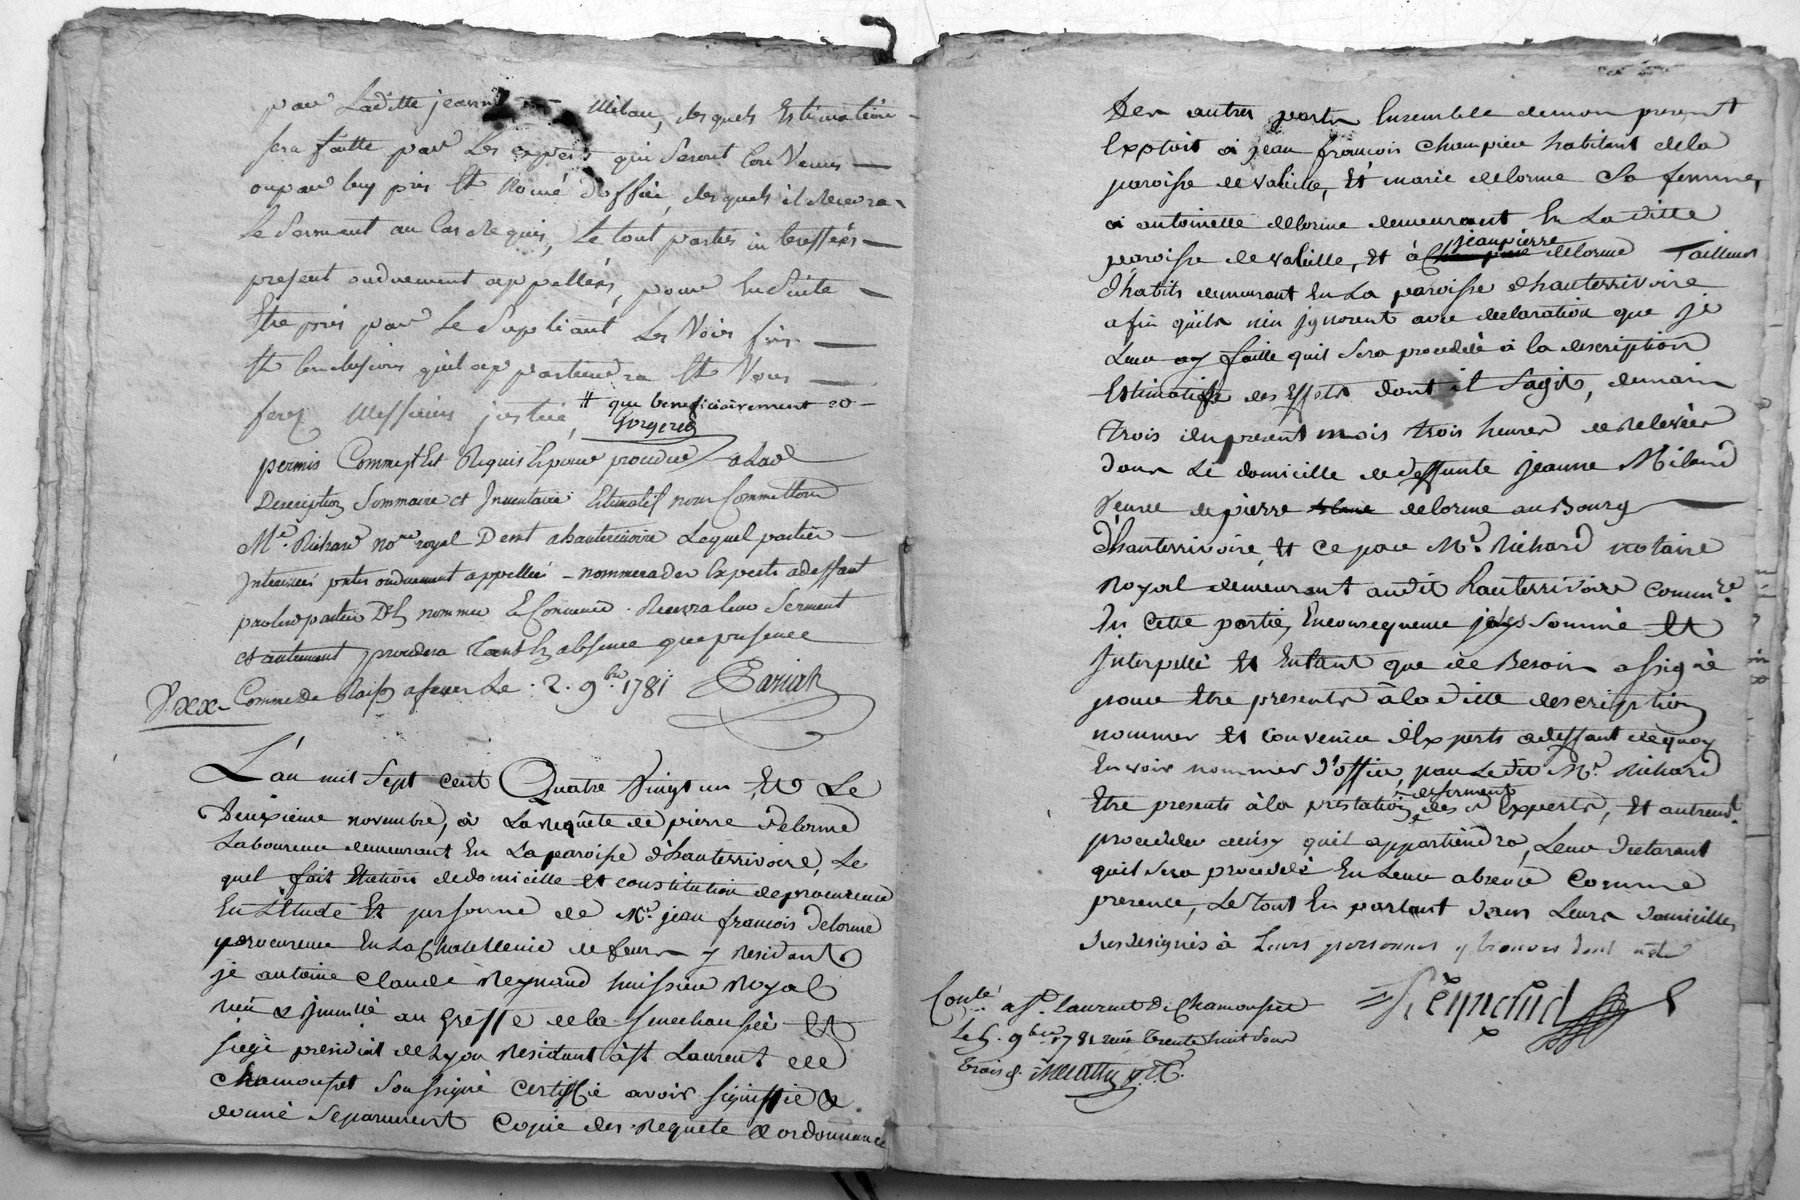 par Laditte jeanne Milan, desquels Estimation
sera faitte par Les experts qui seront Convenus
ou par luy pris et Nomé d'office, desquels il recevra
Le Serment au Cas Requis, Le tout parties interessées
present ou duement appellées, pour Ensuite
Etre pris par Le Supliant Les Voies fins
Et Conclusions qu'il appartiendra Et Vous
ferez Messieurs justice, # que beneficiairement
Gorgeret
permis Comme Est Requis procedé a Lad
Description Sommaire et Inventaire Estimatif nous Commettons
Me. Richard nore royal Demt a hauterivoire Lequel parties
Interessées pntes ou duement appellées nommera des Experts a deffaut
par les parties D'En nommer Et Convenir. Recevra leur Serment
et autrement procedera tant En absence que presence
Comme de Raison a feurs Le 2. 9bre. 1781
L'an mil Sept cent Quatre Vingt un Et Le
Deuxieme novembre, à La requête de pierre delorme
Laboureur demeurant En La paroisse d'hauterrivoire, Le
quel fait Election de domicille Et constitution de procureur
En L'Etude Et personne de Me. jean françois Delorme
procureur En La Chatellenie de feurs y Residant
je antoine Claude Reynaud huissier Royal
reçu & immllé au Greffe de la Senechaussée Et
siege presidial de Lyon Residant à St. Laurent de
Chamousset Soussigné certiffie avoir signiffié &
donné Separement Copie des Requete & ordonnance
Des autres parts Ensemble de mon present
Exploit à jean françois Champier habitant de la
paroisse de valeille, Et marie delorme Sa femme,
à antoinette delorme demeurant En La ditte
paroisse de valeille, Et à jean pierre delorme Tailleur
d'habits demeurant En La paroisse d'hauterrivoire
afin qu'ils n'en jgnorent avec declaration que je
Leur ay faitte quil Sera procedé à la description
Estimative des Effets dont il s'agit, demain
trois du present mois trois heures de Relevée
dans Le domicille de deffunte jeanne Miland
Veuve de pierre delorme au Bourg
d'hauterrivoire, Et ce par Me. Richard notaire
Royal demeurant audit hauterrivoire Commre.
En Cette partie, En consequence je les Sommé Et
Interpellé Et En tant que de Besoin assigné
pour Etre presents à la ditte description
nommer Et convenir d'Experts a deffaut de quoy
En voir nommer d'office, par Le dit Me. Richard
Etre presents à la prestation de serment des Experts, Et autremt.
proceder ainsy quil appartiendra, Leur declarant
quil Sera procedé En Leur absence Comme
presence, Le tout En parlant dans Leurs domicilles
Susdesignés à Leurs personnes y trouvés dont acte
Reynaud
Conlé a St. Laurent de Chamousset
Le 5. 9bre 1781 reçu trente huit sous
trois d.